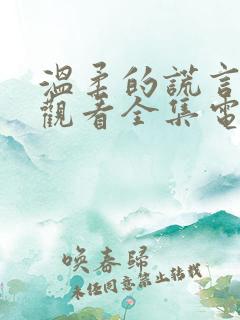 溫柔的謊言
觀看全集電
喚春歸
未經同意禁止轉載